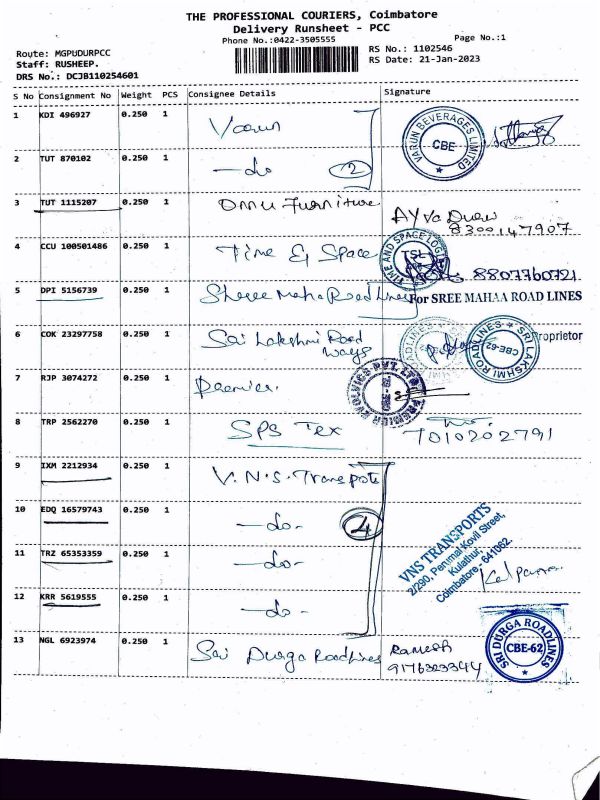 THE PROFESSIONAL COURIERS, Coimbatore
Delivery Runsheet - PCC
Phone No.:0422-3505555
Page No.:1
Route: MGPUDURPCC
RS No.: 1102546
Staff: RUSHEEP.
RS Date: 21-Jan-2023
DRS No.: DCJB110254601
S No Consignment No Weight PCS Consignee Details Signature
1 KDI 496927 0.250 1 Varun
VARUN BEVERAGES LIMITED CBE
2 TUT 870102 0.250 1 -do- 2
3 TUT 1115207 0.250 1 Omu Furniture
8300147907
4 CCU 100501486 0.250 1 Time & Space
TIME AND SPACE TSL
8807760721
5 DPI 5156739 0.250 1 Shree Maha Road Lines For SREE MAHAA ROAD LINES
6 COK 23297758 0.250 1 Sai Lakshmi Road Ways
Proprietor
SRI LAKSHMI ROADLINES CBE-62
7 RJP 3074272 0.250 1 Premier.
PREMIER EVOLVICS PVT. LTD.
8 TRP 2562270 0.250 1 SPS Tex 7010202791
9 IXM 2212934 0.250 1 V.N.S. Transpots
10 EDQ 16579743 0.250 1 -do- 4
VNS TRANSPORTS
2/290, Perumal Kovil Street,
Kulathur,
Coimbatore - 641062.
11 TRZ 65353359 0.250 1 -do-
Kalpana
12 KRR 5619555 0.250 1 -do-
13 NGL 6923974 0.250 1 Sai Durga Roadlines Ramesh
9176323344
SRI DURGA ROADLINES CBE-62